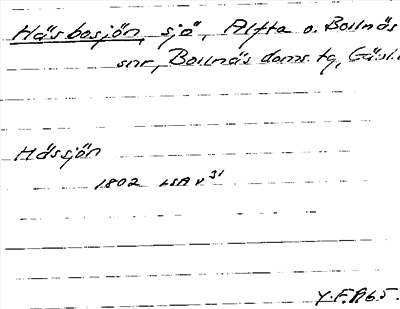 Häsbosjön, sjö, Alfta o. Bollnäs
snr, Bollnäs doms. tg, Gävl.
Hässjön
1802 LSA v 31
Y.F. A65.